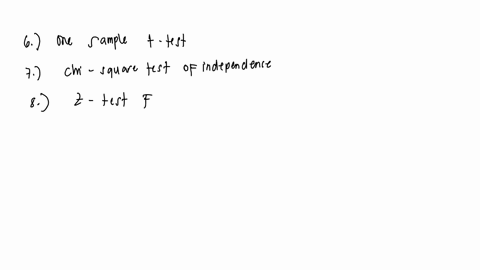 6.) One sample t-test
7.) chi-square test of independence
8.) Z-test F